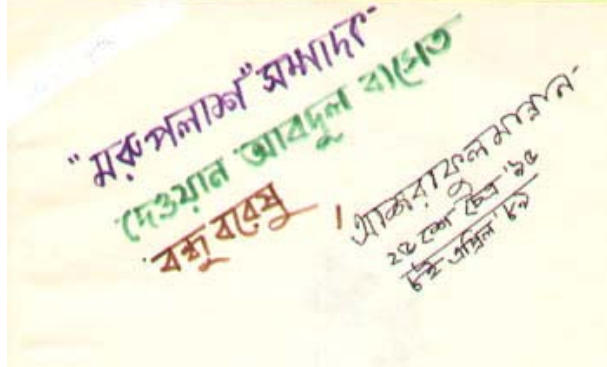 "মরুপলাশ" সম্পাদক
দেওয়ান আবদুল বাসেত
বন্ধু বরেষু ।
আশরাফুল মান্নান
২৫ শে চৈত্র '৯৫
৮ই এপ্রিল '৮৯